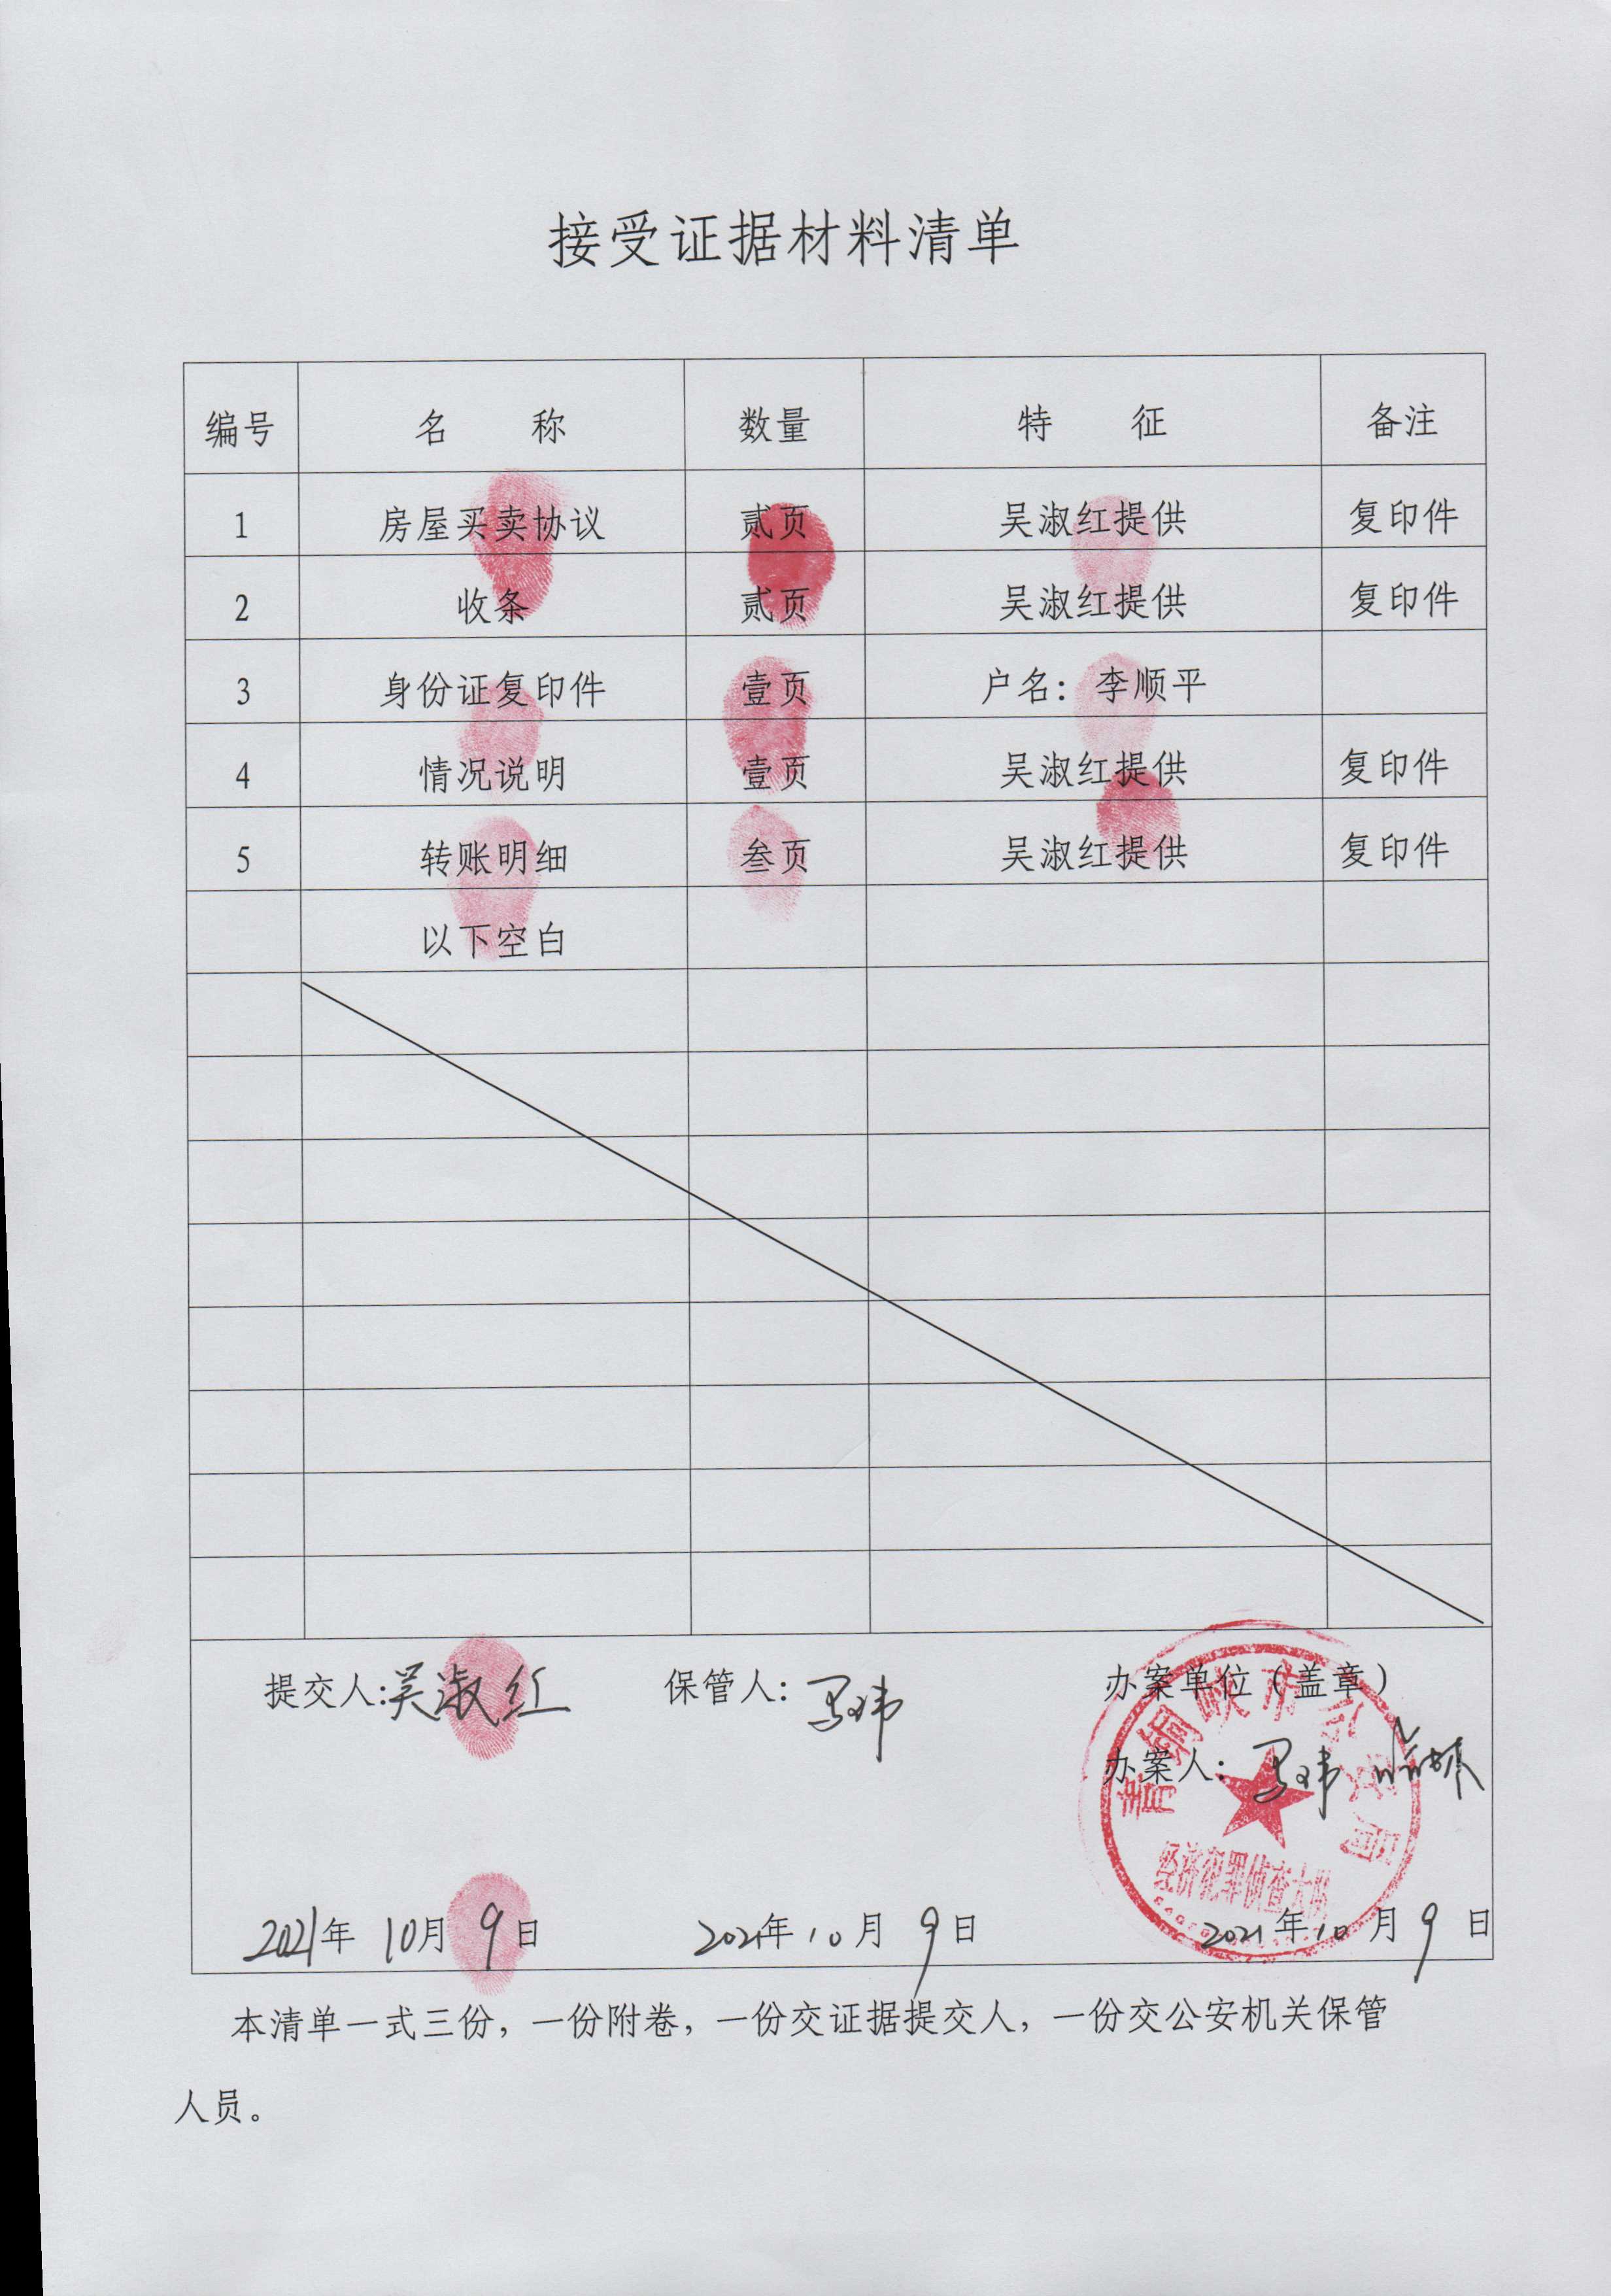 接受证据材料清单
编号 名 称 数量 特 征 备注
1 房屋买卖协议 贰页 吴淑红提供 复印件
2 收条 贰页 吴淑红提供 复印件
3 身份证复印件 壹页 户名：李顺平
4 情况说明 壹页 吴淑红提供 复印件
5 转账明细 叁页 吴淑红提供 复印件
以下空白
提交人:吴淑红 保管人：马玮 办案单位（盖章）
办案人：马玮
青铜峡市公安局
经济犯罪侦查大队
2021年 10月 9日 2021年 10月 9日 2021年10月9日
本清单一式三份，一份附卷，一份交证据提交人，一份交公安机关保管
人员。